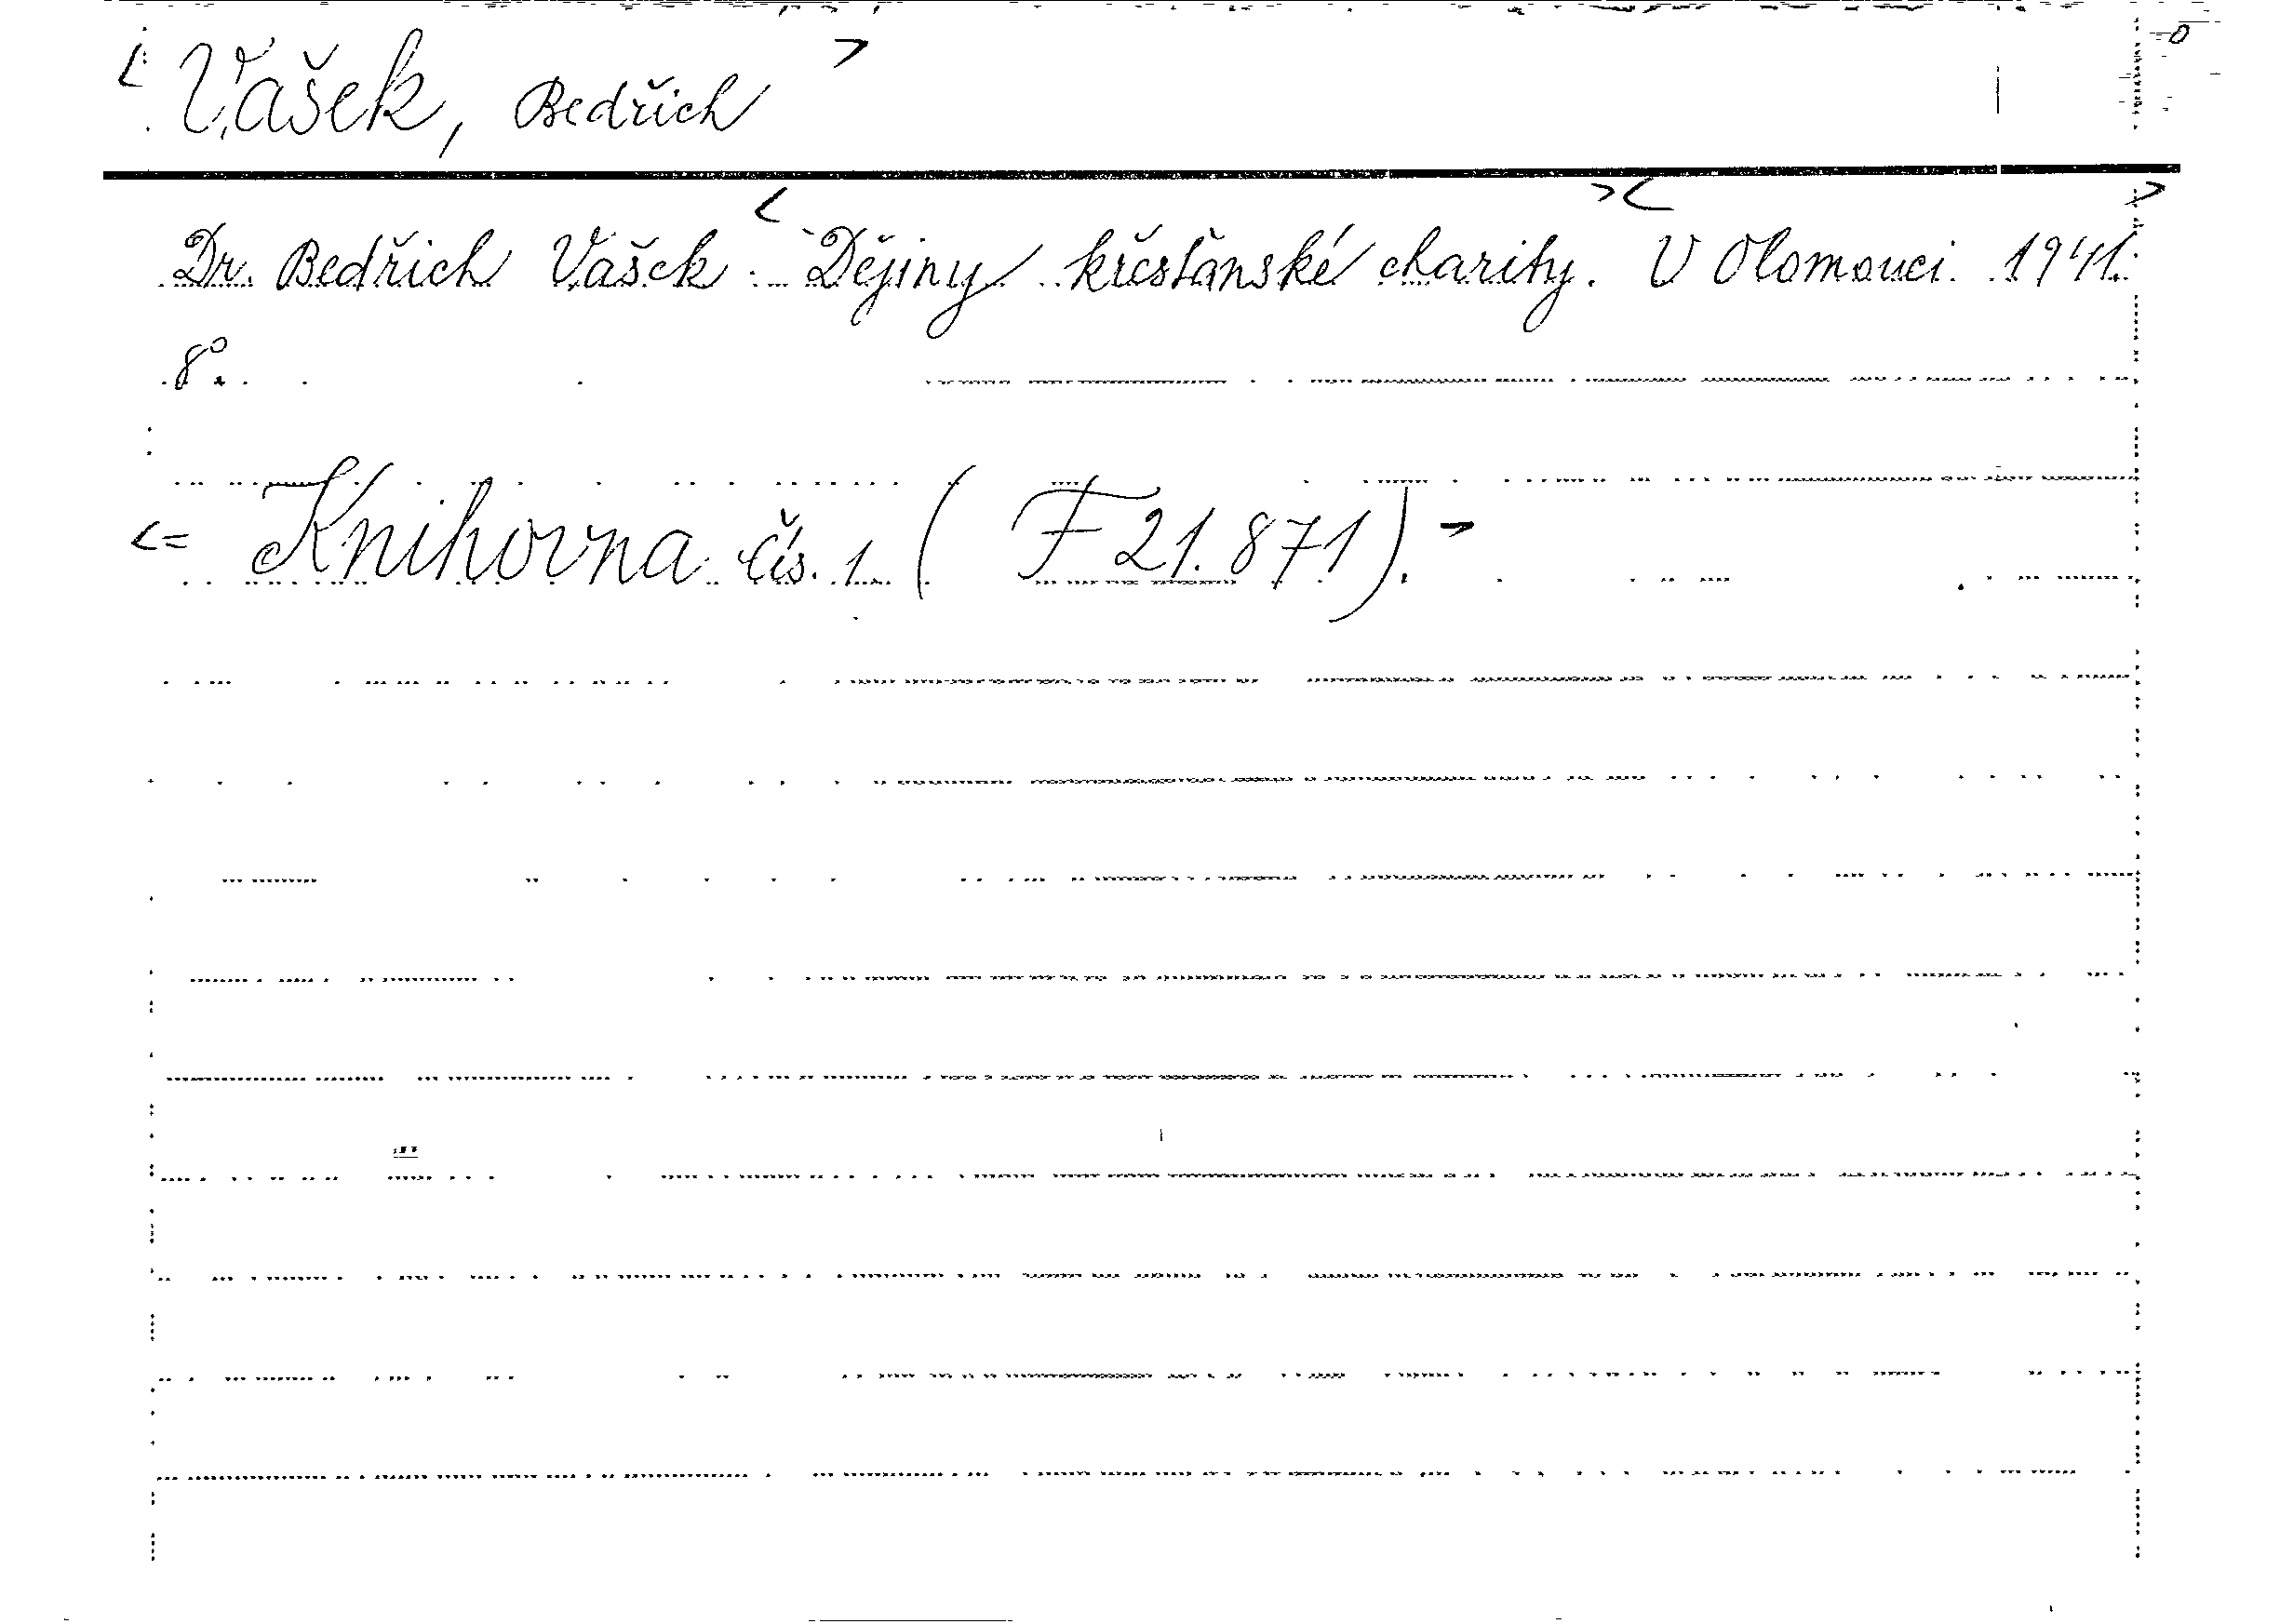 < Vašek, Bedřich >
Dr. Bedřich Vašek: < Dějiny křesťanské charity. >< V Olomouci 1941. >
8°.
<= Knihovna čís. 1 ( F 21.871). >